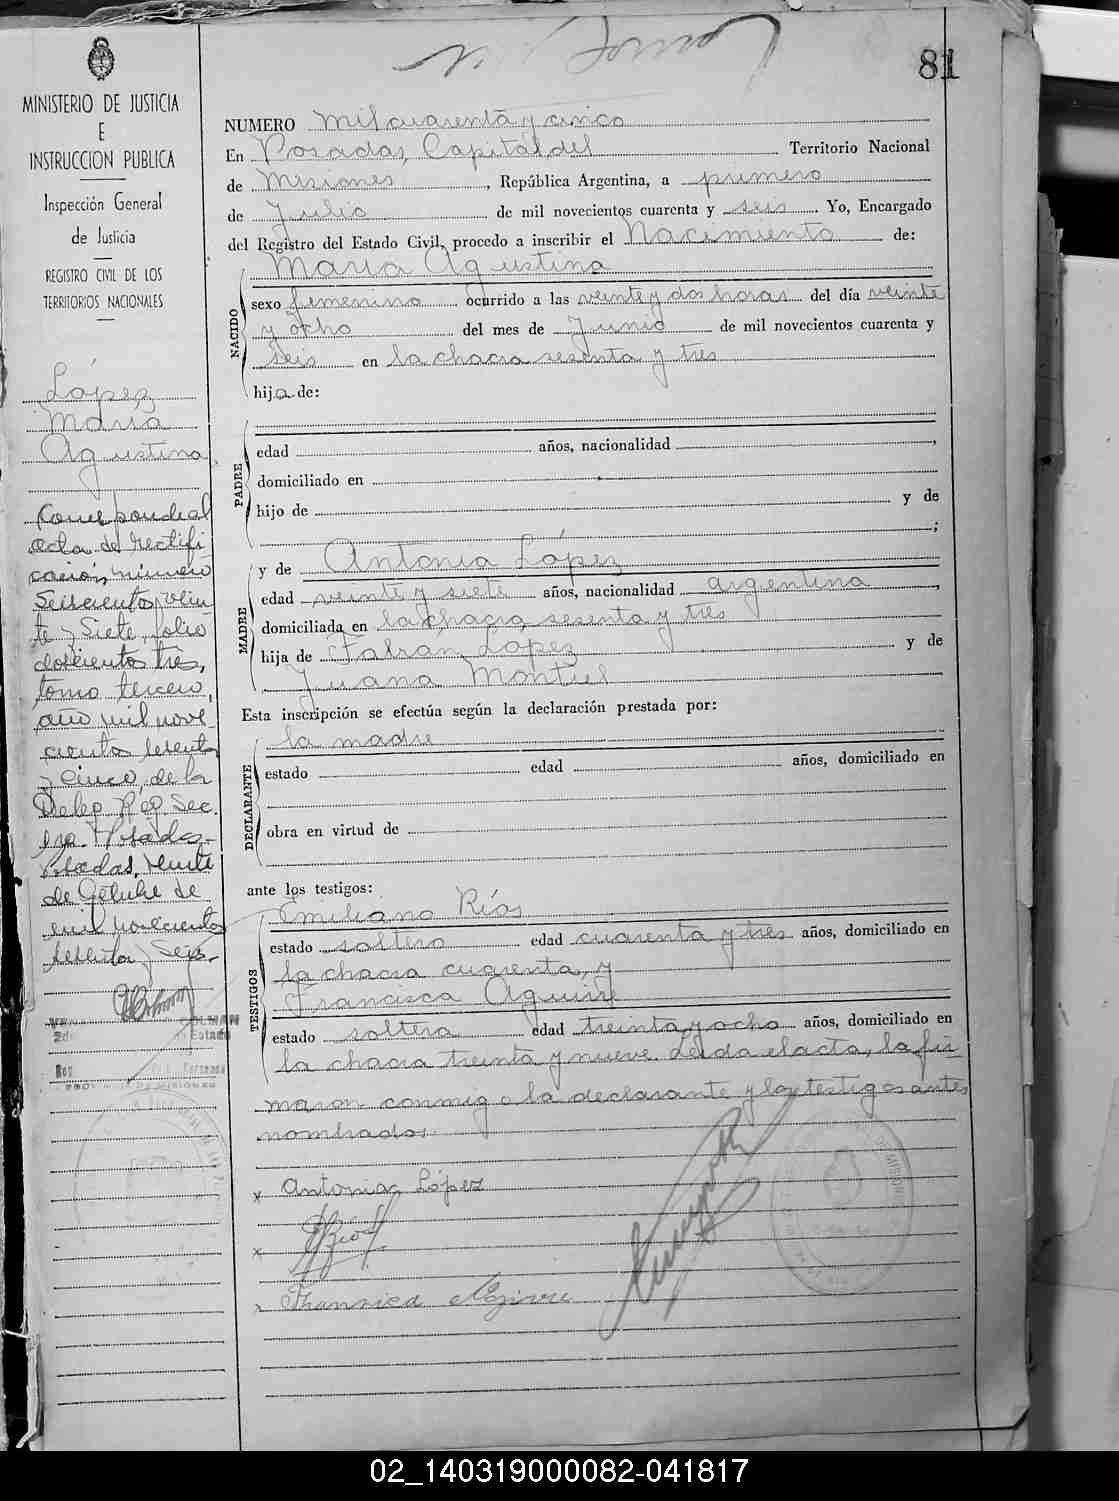 81
MINISTERIO DE JUSTICIA
E
INSTRUCCION PUBLICA
Inspección General
de Justicia
REGISTRO CIVIL DE LOS
TERRITORIOS NACIONALES
López
María
Agustina
Corresponde al
acta de rectifi
cación, número
Seiscientos vein
te y Siete, folio
doscientos tres,
tomo tercero,
año mil nove
cientos sesenta
y cinco, de la
Deleg. Reg. Secc.
1ra. Posadas.-
Posadas, veinte
de Octubre de
mil novecientos
sesenta y Seis.-
NUMERO Mil cuarenta y cinco
En Posadas, Capital del Territorio Nacional
de Misiones, República Argentina, a primero
de Julio de mil novecientos cuarenta y seis. Yo, Encargado
del Registro del Estado Civil, procedo a inscribir el Nacimiento de:
María Agustina
NACIDO
sexo femenino ocurrido a las veinte y dos horas del día veinte
y ocho del mes de Junio de mil novecientos cuarenta y
seis en la chacra sesenta y tres
hija de:
PADRE
edad años, nacionalidad ,
domiciliado en
hijo de y de
;
y de Antonia López
MADRE
edad veinte y siete años, nacionalidad argentina,
domiciliada en la chacra sesenta y tres
hija de Fabian López y de
Juana Montiel
Esta inscripción se efectúa según la declaración prestada por:
la madre
DECLARANTE
estado edad años, domiciliado en
obra en virtud de
ante los testigos:
Emiliano Ríos
TESTIGOS
estado soltero edad cuarenta y tres años, domiciliado en
la chacra cuarenta, y
Francisca Aguirre
estado soltera edad treinta y ocho años, domiciliado en
la chacra treinta y nueve. Leída el acta, la fir-
maron conmigo la declarante y los testigos antes
nombrados.
x Antonia López
x ERíos
x
02_140319000082-041817